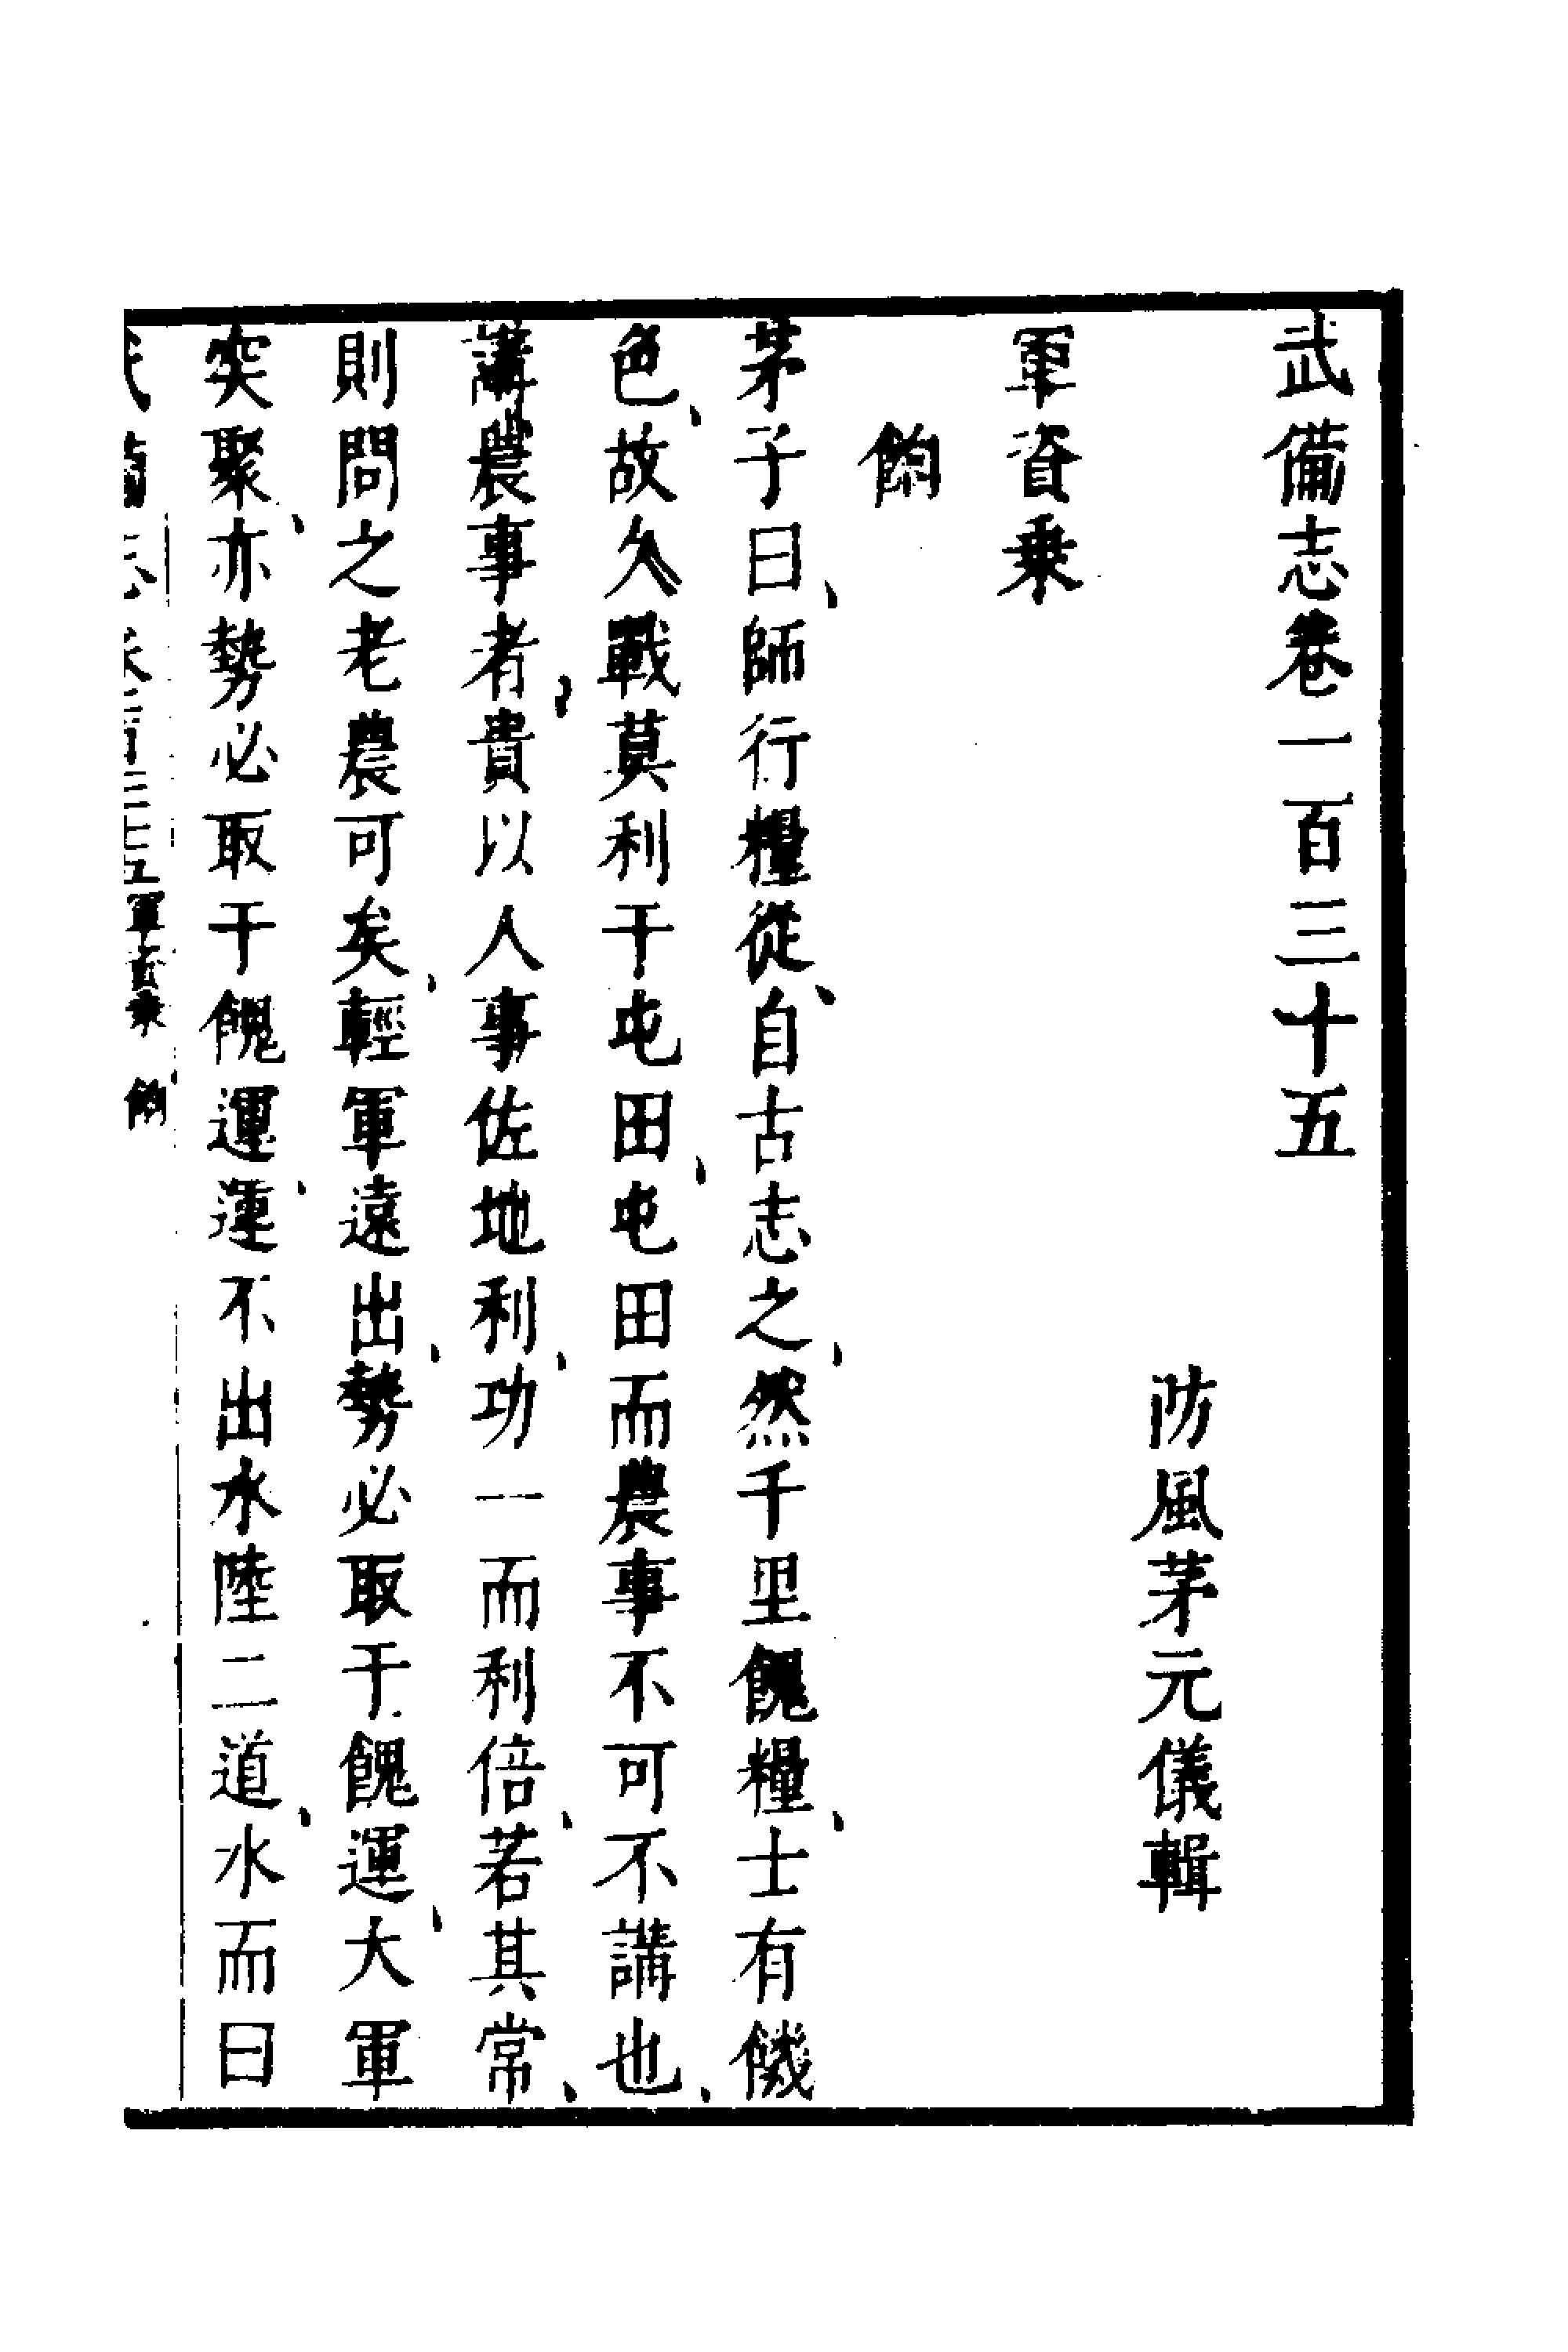 武備志卷一百三十五
防風茅元儀輯
軍資乗
餉
茅子曰、師行糧從、自古志之、然千里餽糧、士有饑
色、故久戰莫利于屯田、屯田而農事不可不講也、
講農事者、貴以人事佐地利、功一而利倍、若其常、
則問之老農可矣、輕軍遠出、勢必取于餽運、大軍
突聚、亦勢必取于餽運、運不出水陸二道、水而曰
武備志 卷一百三十五 軍資乗 餉